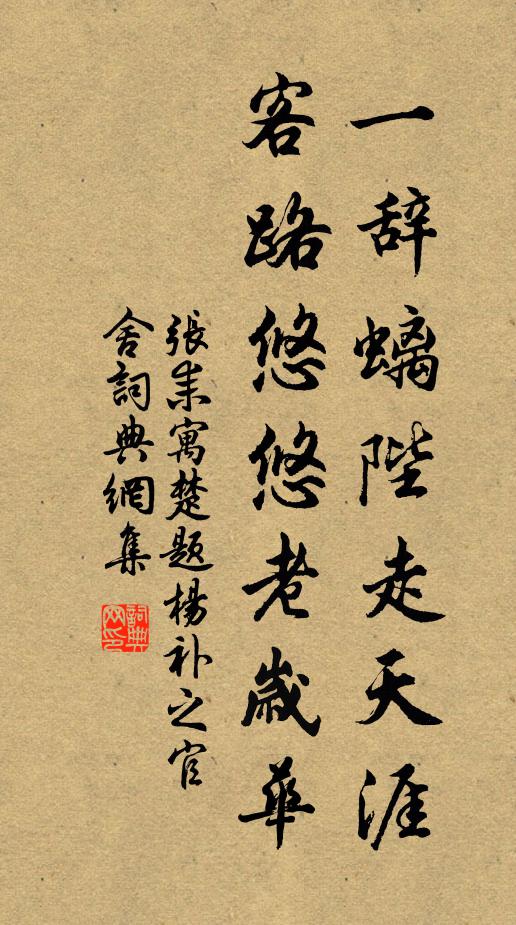 一辞螭陛走天涯
客路悠悠老歲華
張耒寓楚題楊补之官
舍詞典網集
詞典网印